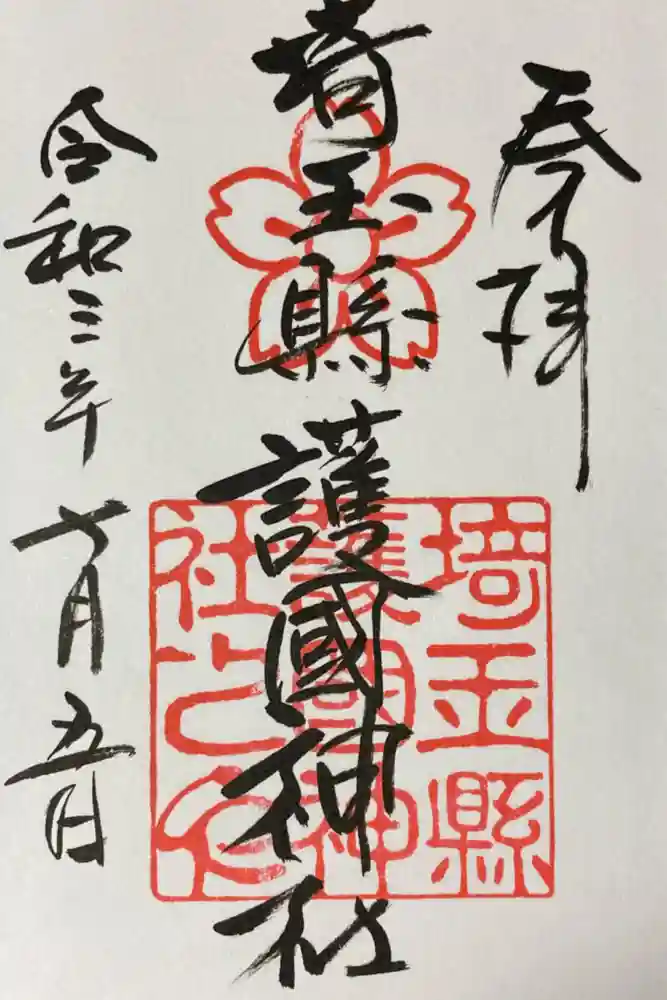 奉拝
埼玉縣護國神社
令和三年七月五日
埼玉縣
護國神
社之印